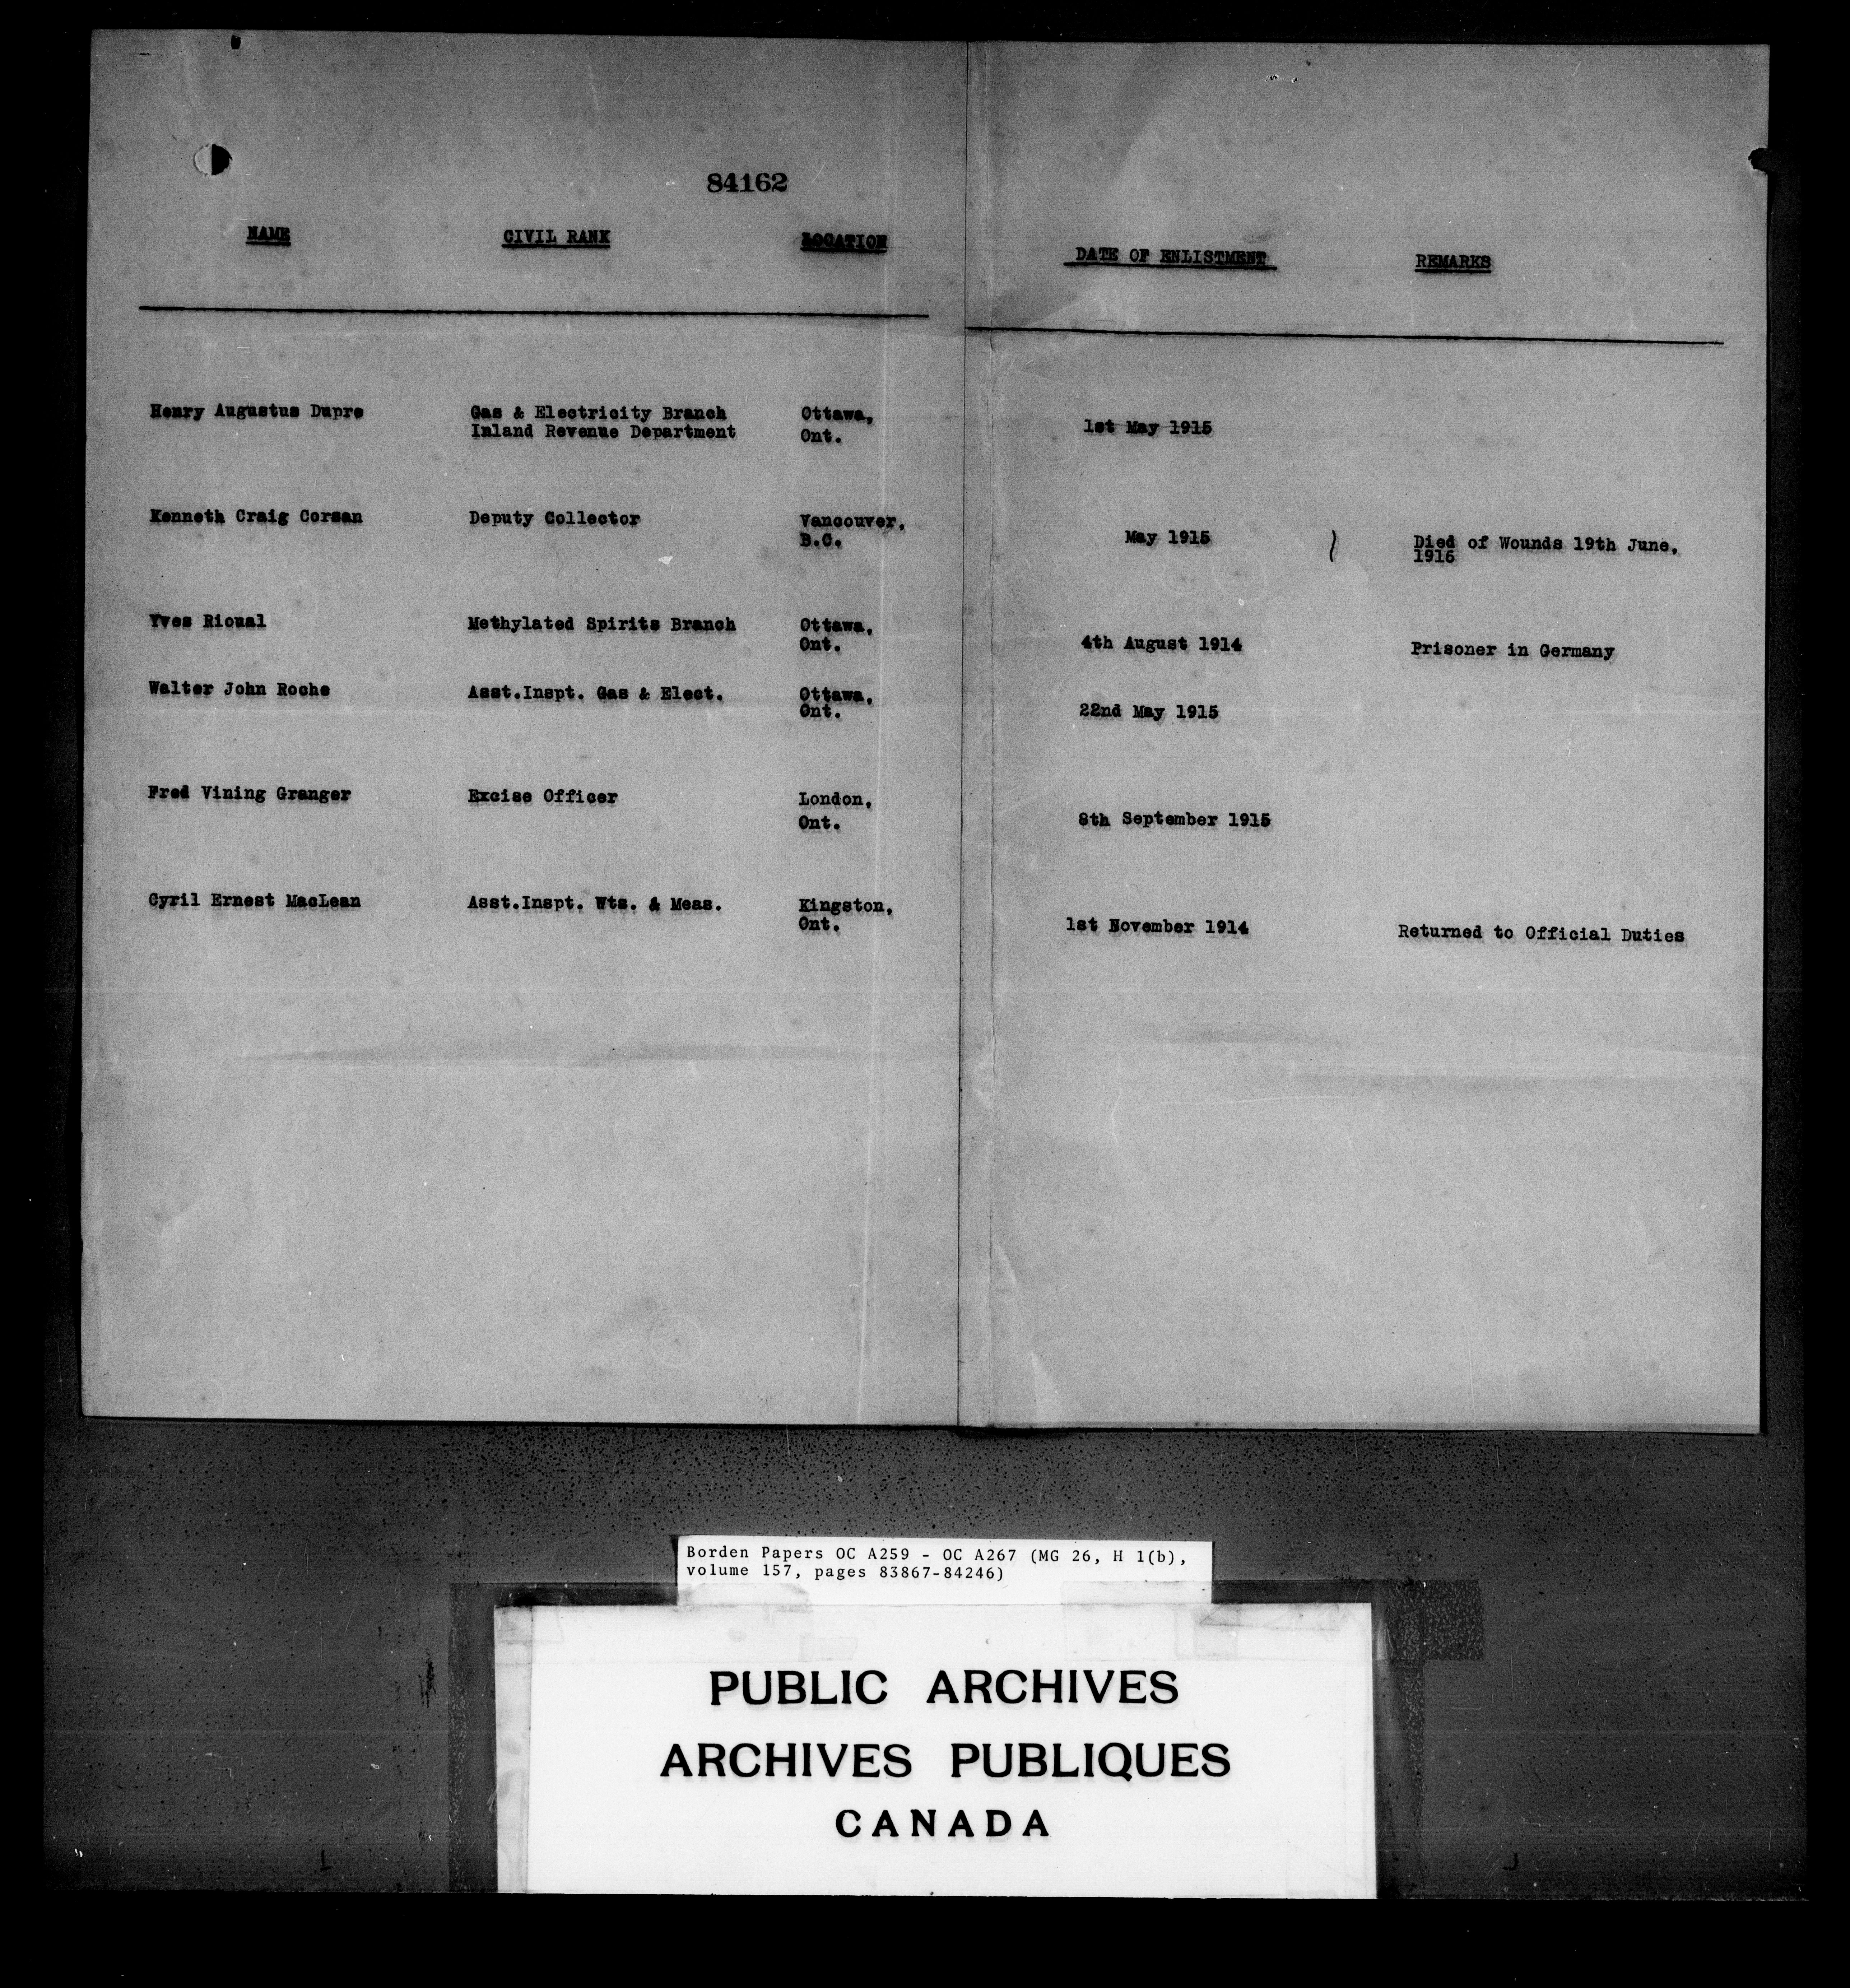 84162
NAME CIVIL RANK LOCATION DATE OF ENLISTMENT REMARKS
Henry Augustus Dupre Gas & Electricity Branch Ottawa, 1st May 1915
Inland Revenue Department Ont.
Kenneth Craig Corsan Deputy Collector Vancouver, May 1915 Died of Wounds 19th June,
B.C. 1916
Yves Rioual Methylated Spirits Branch Ottawa, 4th August 1914 Prisoner in Germany
Ont.
Walter John Roche Asst.Inspt. Gas & Elect. Ottawa, 22nd May 1915
Ont.
Fred Vining Granger Excise Officer London, 8th September 1915
Ont.
Cyril Ernest MacLean Asst.Inspt. Wts. & Meas. Kingston, 1st November 1914 Returned to Official Duties
Ont.
Borden Papers OC A259 - OC A267 (MG 26, H 1(b),
volume 157, pages 83867-84246)
PUBLIC ARCHIVES
ARCHIVES PUBLIQUES
CANADA